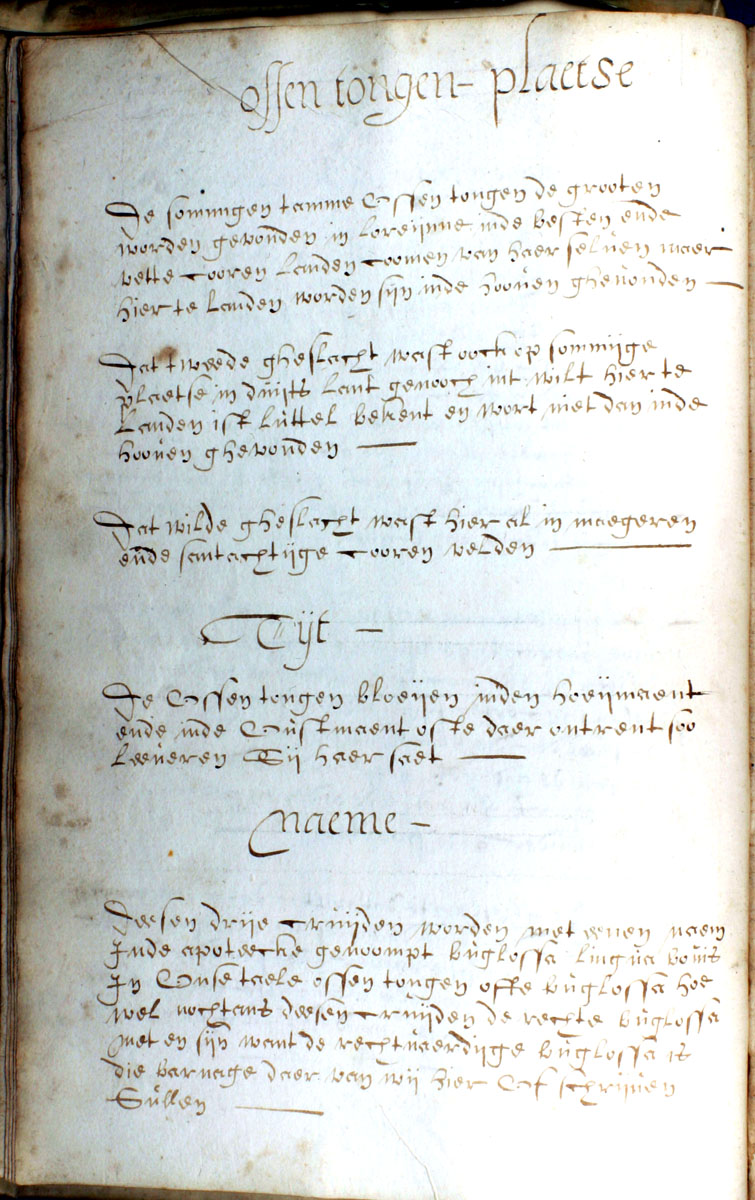 ossen tongen - plaetse
De sommigen tamme Ossen tongen de grooten
worden gevonden in loreijnne inde besten ende
vette cooren landen coomen van haer selven maer
hier te landen worden sijn inde hooven ghevonden —
Dat tweede gheslacht wast oock op sommijge
plaetse in duijts lant genooch int wilt hier te
Landen ist lúttel bekent en wort niet dan inde
hooven ghevonden —
Dat wilde gheslacht wast hier al in maegeren
ende santachtijge cooren velden —
Tijt —
De Ossen tongen bloeijen inden hoeijmaent
ende inde Oústmaent oft daer ontrent soo
Leeveren Sij haer saet —
Naeme —
Deesen drije crúijden worden met eenen naem
Inde apoteecke genoompt búglossa lingúa bovis
In Onse taele ossen tongen offte búglossa hoe
wel nochtans deesen crúijden de rechte búglossa
niet en sijn want de rechtvaerdijge búglossa is
die barnage daer van wij hier Of schrijven
Súllen —